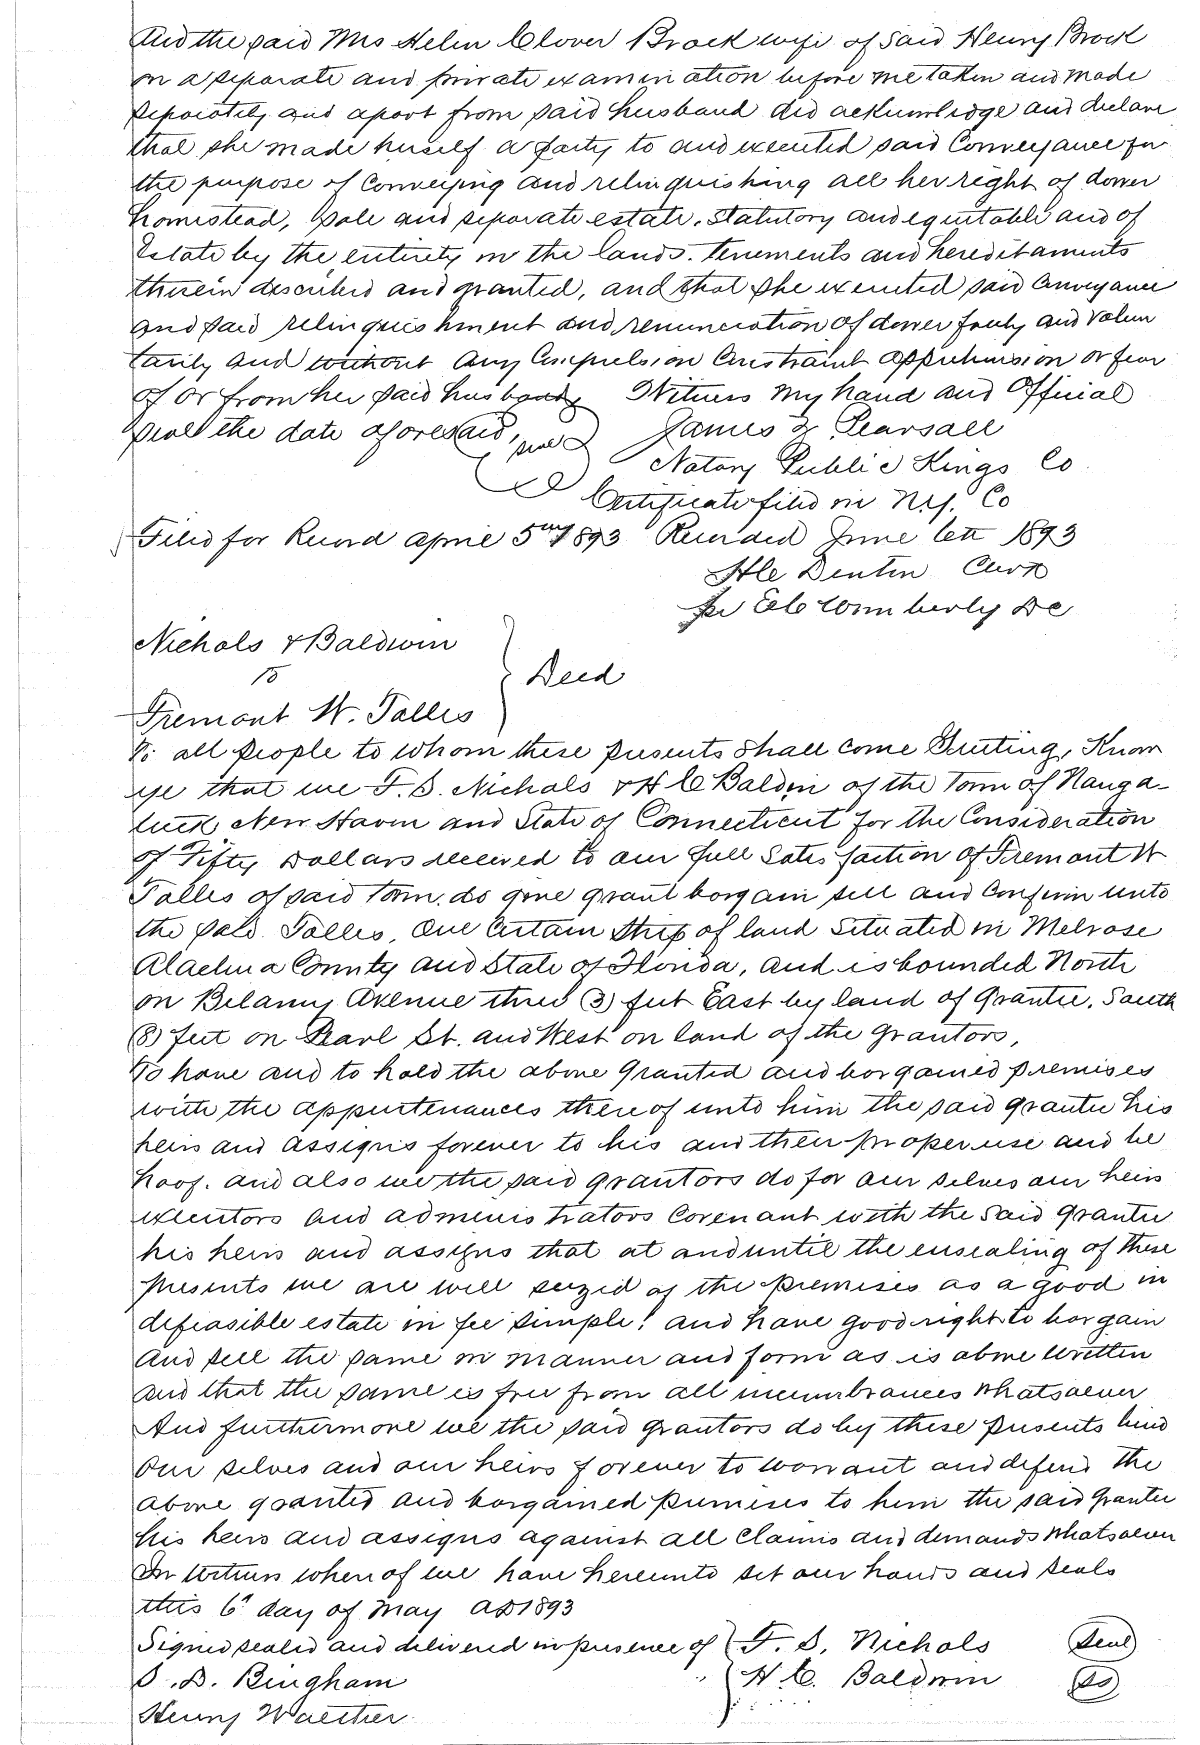 And the said Mrs Helen Clover Brock wife of said Henry Brock
on a separate and private examination before me taken and made
separately and apart from said husband did acknowledge and declare
that she made herself a party to and executed said Conveyance for
the purpose of Conveying and relinquishing all her right of dower
homestead, sole and separate estate, statutory and equitable and of
Estate by the entirety in the lands. tenements and hereditaments
therein described and granted, and that she executed said Conveyance
and said relinquishment and renunciation of dower freely and volun
tarily and without any Compulsion Constraint apprehension or fear
of or from her said husband, Witness my hand and Official
seal the date aforesaid, seal James Pearsall
Notary Public Kings Co.
Certificate filed in N.Y. Co
Filed for Record april 5 1893 Recorded June 1893
Denton Clerk
Per Wimberly DC
Nichols & Baldwin
To
Deed
Fremont W. Tolles
To all people to whom these presents shall come Greeting, Know
ye that we F. S. Nichols & H C Baldin of the Town of Nauga-
tuck New Haven and State of Connecticut for the Consideration
of Fifty Dollars received to our full Satisfaction of Fremont W
Tolles of said Town, do give grant bargain sell and Confirm unto
the said Tolles, One Certain Strip of land Situated in Melrose
Alachua County and State of Florida, and is bounded North
on Belamy Avenue three (3) feet East by land of Grantee, South
(8) feet on Pearl St. and West on land of the Grantors,
To have and to hold the above Granted and bargained premises
with the appurtenances thereof unto him the said grantee his
heirs and assigns forever to his and their proper use and be
hoof. and also we the said grantors do for our selves our heirs
executors and administrators Covenant with the said Grantee
his heirs and assigns that at and until the ensealing of these
presents we are well seized of the premises as a good in
defeasible estate in fee simple! and have good right to bargain
and sell the same in manner and form as is above written
and that the same is free from all incumbrances whatsoever
And furthermore we the said grantors do by these presents bind
our selves and our heirs forever to warrant and defend the
above granted and bargained premises to him the said Grantee
his heirs and assigns against all Claims and demands whatsoever
In witness whereof we have hereunto set our hands and seals
this 6" day of May AD 1893
Signed sealed and delivered in presence of F. S. Nichols Seal
S. D. Bingham H. C. Baldwin
Henry